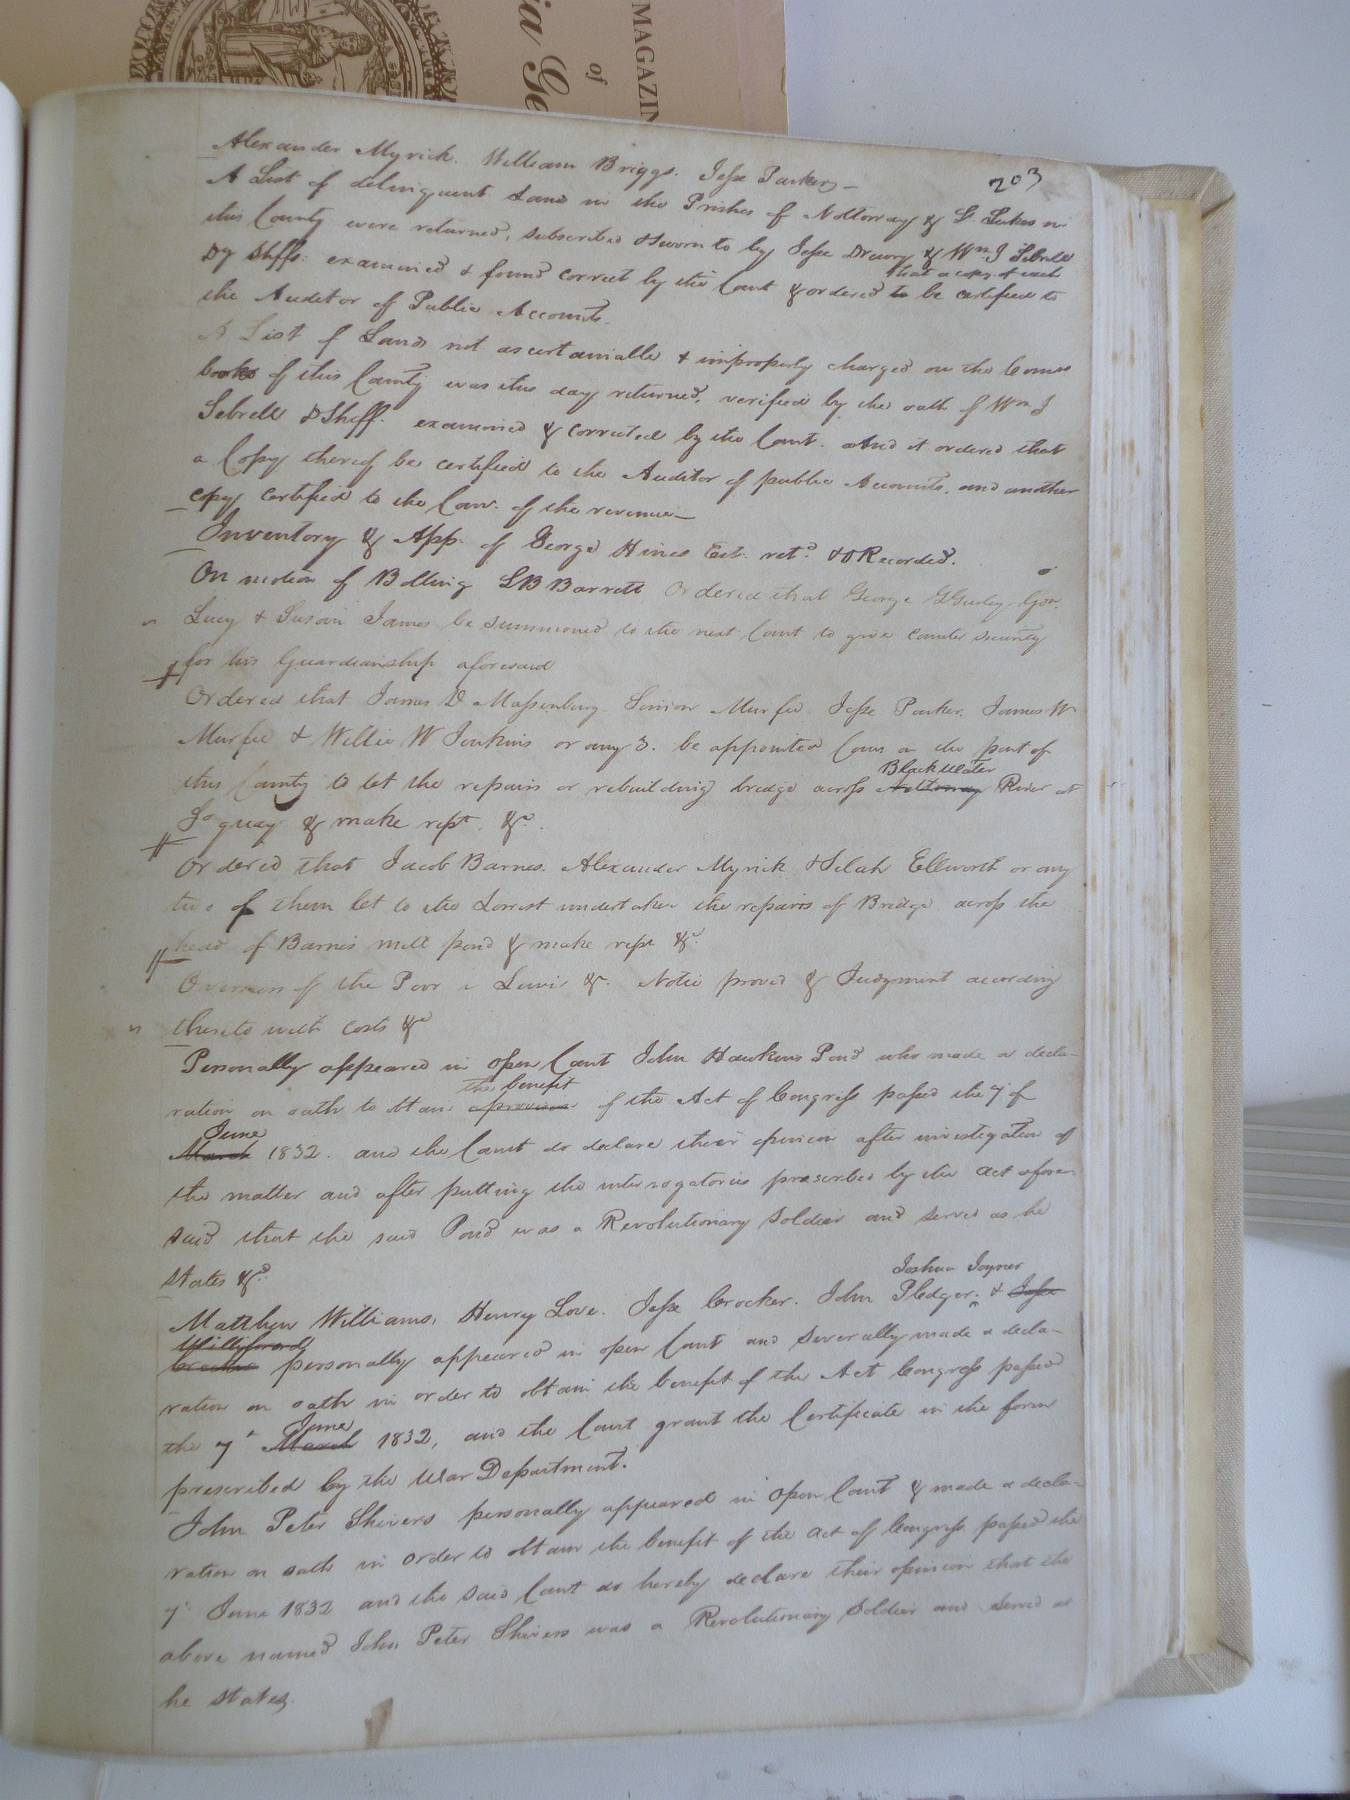 MAGAZIN
of
ia Ge
203
Alexander Myrick. William Briggs. Jesse Parker
A List of delinquent Land in the Prishes of Nottoway & St. Lukes in
this County were returned, subscribed & sworn to by Jesse Drewry & Wm J Sebrell
that a copy of each
Dy Shffs. examined & found correct by the Court & ordered to be certified to
the Auditor of Public Accounts.
A List of Lands not ascertainable & improperly charged on the Comrs
books of this County was this day returned, verified by the oath of Wm J
Sebrell D Shff. examined & corrected by the Court. And it ordered that
a Copy thereof be certified to the Auditor of public Accounts, and another
copy certified to the Com. of the revenue
Inventory & App. of George Hines Est. retd & O Recorded.
On motion of Bolling B Barrett Ordered that George Gurley Gdn.
Lucy & Susan James be summoned to the next Court to give counter security
for his Guardianship aforesaid
Ordered that James D Massenburg Simon Murfee Jesse Parker, James W
Murfee & Willie W Jenkins or any 3. be appointed Com on the part of
Black water
this County to let the repairs or rebuilding bridge across Nottoway River at
quay & make rept. &c.
Ordered that Jacob Barnes. Alexander Myrick & Selah Ellworth or any
two of them let to the Lowest undertaker the repairs of Bridge across the
head of Barnes mill pond & make rept &c.
Overseers of the Poor v Lewis &c. Notice proved & Judgment according
thereto with costs &c
Personally appeared in open Court John Hawkins Pond who made a decla-
the benefit
ration on oath to obtain a provision of the Act of Congress passed the 7 of
June
March 1832. and the Court do declare their opinion after investigation of
the matter and after putting the interrogatories prescribed by the act afore-
said that the said Pond was a Revolutionary Soldier and served as he
states &c.
Joshua Joyner
Matthew Williams, Henry Love. Jesse Crocker. John Pledger. & Jesse
Willyford
Crocker personally appeared in open Court and Severally made a decla-
ration on oath in order to obtain the benefit of the Act Congress passed
June
the 7th March 1832, and the Court grant the Certificate in the form
prescribed by the War Department.
John Peter Shivers personally appeared in Open Court & made a decla-
ration on oath in order to obtain the benefit of the act of Congress passed the
7th June 1832 and the said Court do hereby declare their opinion that the
above named John Peter Shivers was a Revolutionary Soldier and served as
he states.